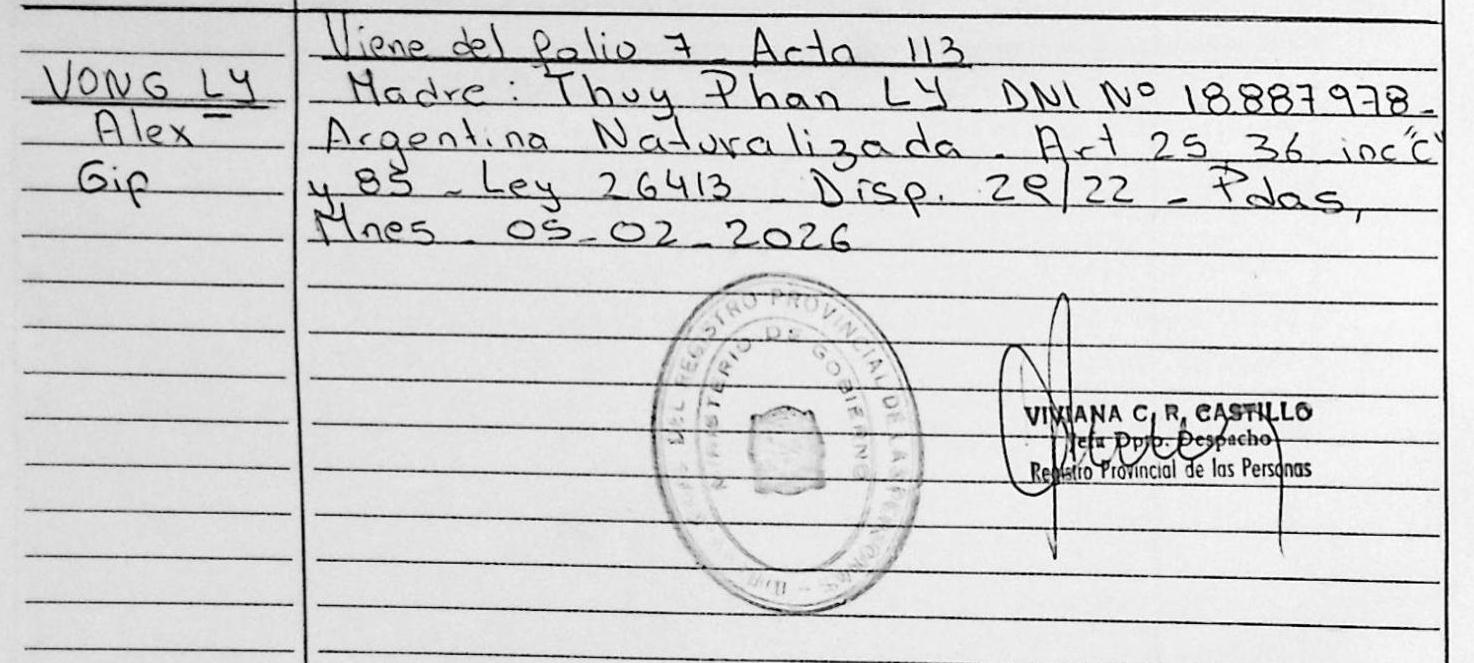 VONG LY
Alex
Gip
Viene del folio 7 - Acta 113
Madre: Thuy Phan LY DNI Nº 18.887.978-
Argentina Naturalizada - Art 25, 36 inc "c"
y 85 - Ley 26413 - Disp. 28/22 - Pdas,
Mnes - 05-02-2026
DEL REGISTRO PROVINCIAL DE LAS PERSONAS
MINISTERIO DE GOBIERNO
VIVIANA C. R. CASTILLO
Jefa Dpto. Despacho
Registro Provincial de las Personas